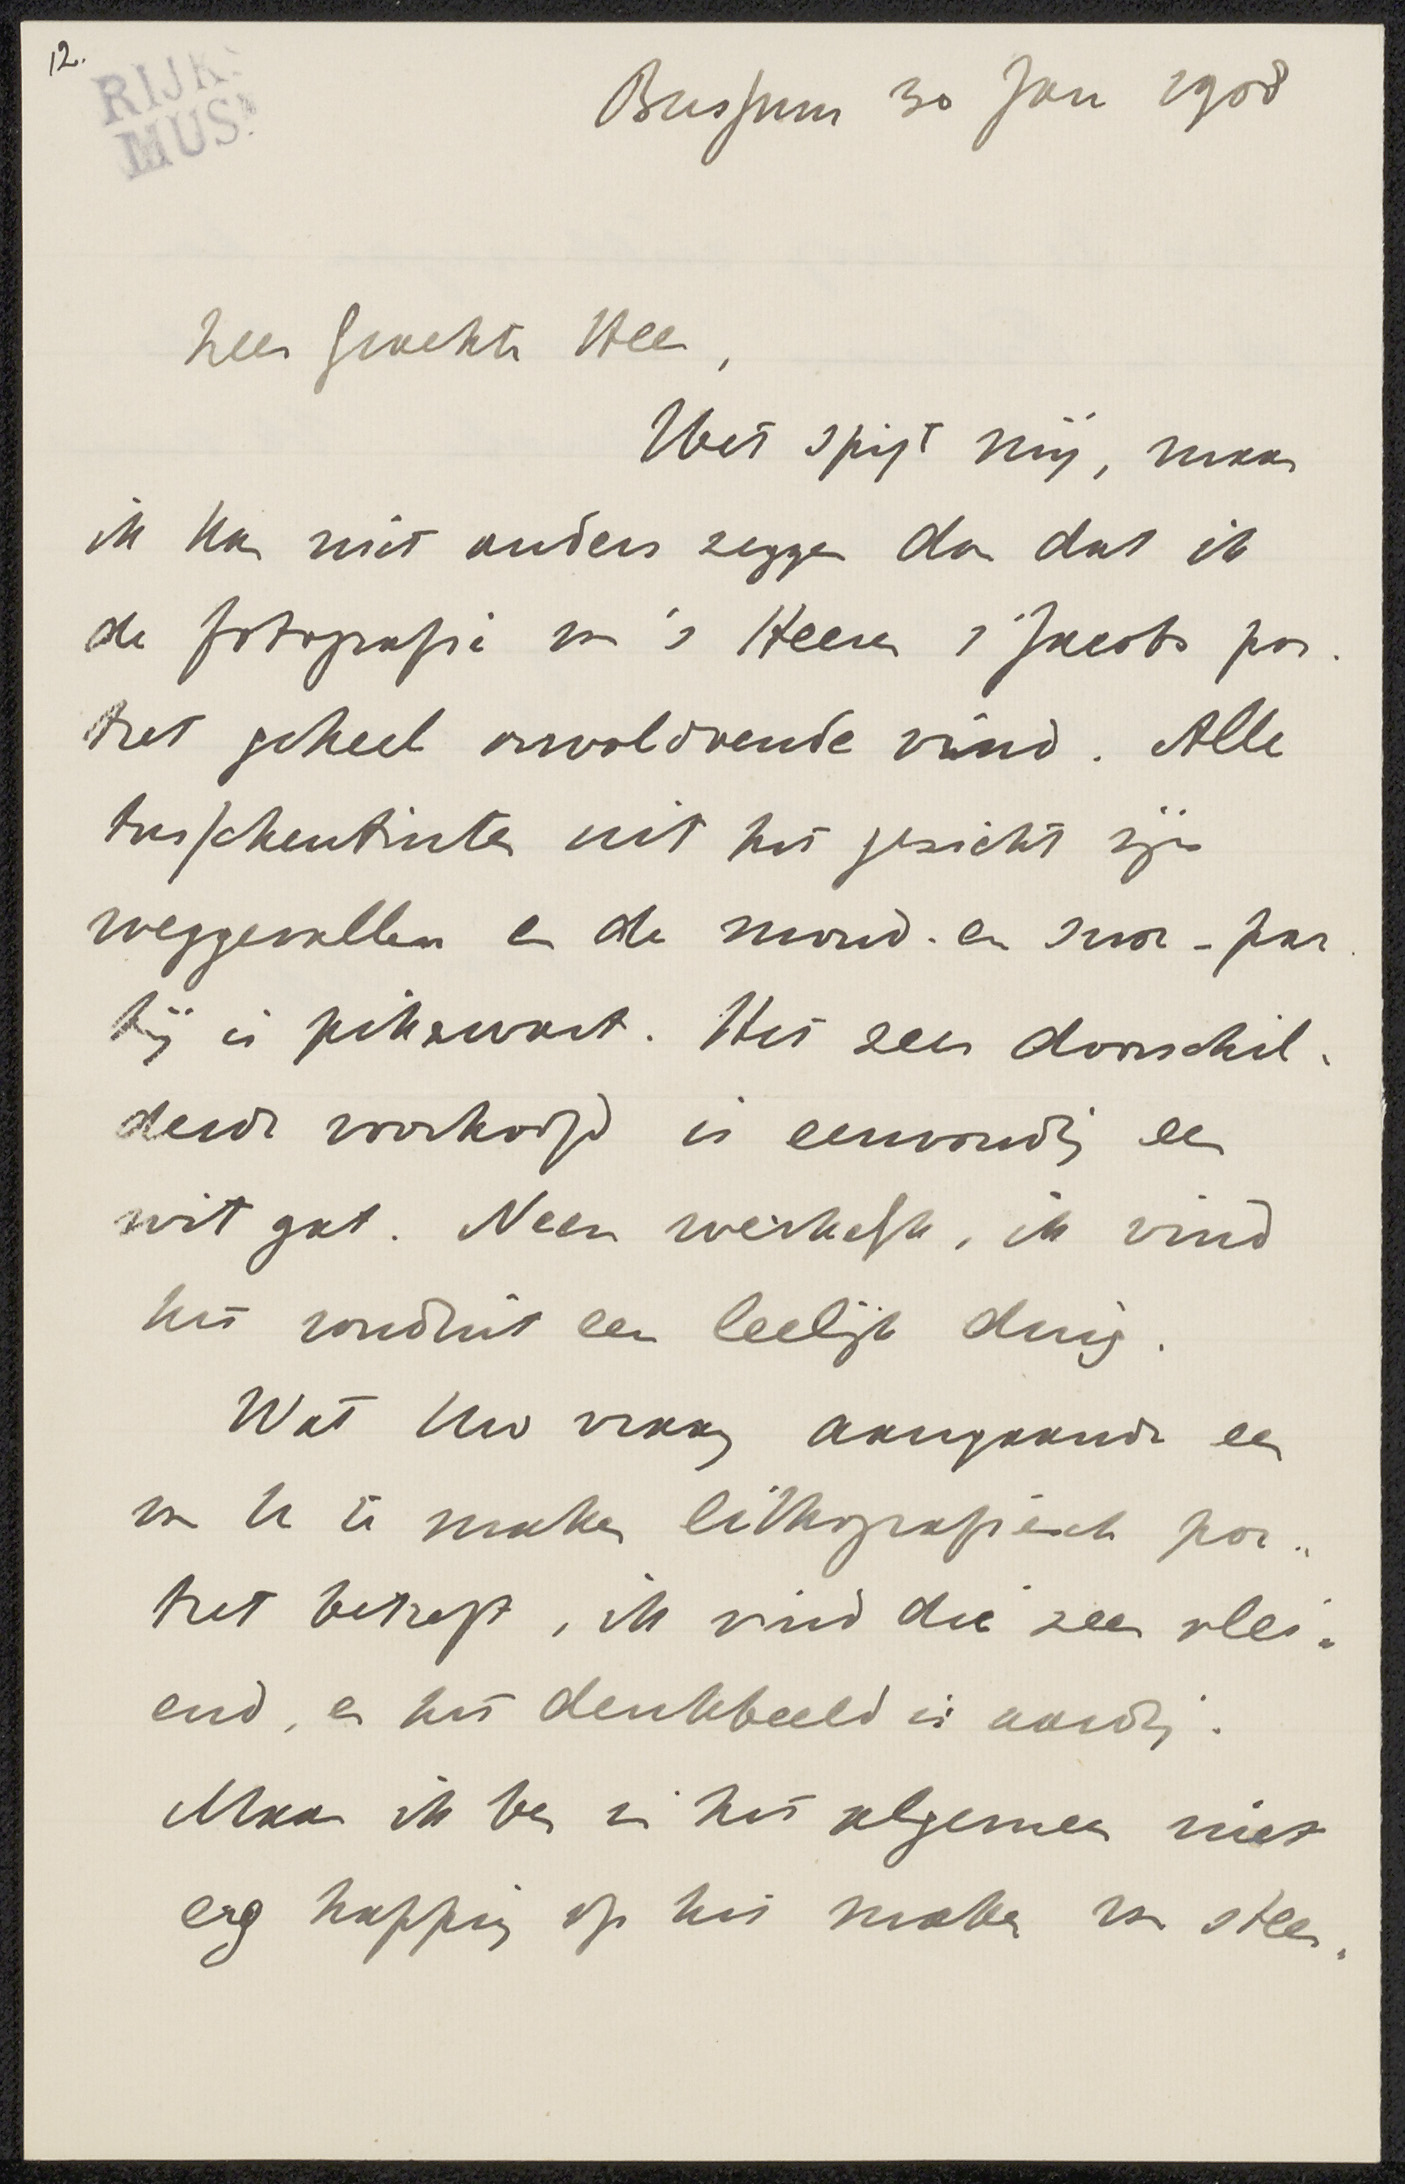 12.
RIJKS
MUS.
Bussum 30 Jan 1908
Zeer Geachte Heer,
Het spijt mij, maar
ik kan niet anders zeggen dan dat ik
de fotografie van 's Heeren s'Jacobs por-
tret geheel onvoldoende vind. Alle
tusschentinten uit het gezicht zijn
weggevallen en de mond- en snor-par-
tij is pikzwart. Het zeer doorschil-
derde voorhoofd is eenvoudig een
wit gat. Neen werkelijk, ik vind
het ronduit een leelijk ding.
Wat Uw vraag aangaande een
van U te maken lithografiesch por-
tret betreft, ik vind die zeer vlei-
end, en het denkbeeld is aardig.
Maar ik ben in het algemeen niet
erg happig op het maken van steen-